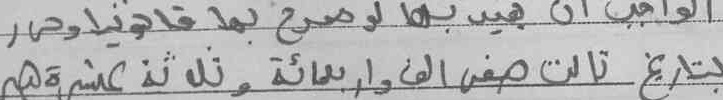 الواجب ان يجيب بها لو صرح بها قانونيا وحرر
بتاريخ ثالث صفر الف واربعمائة وثلاثة عشرة هجر